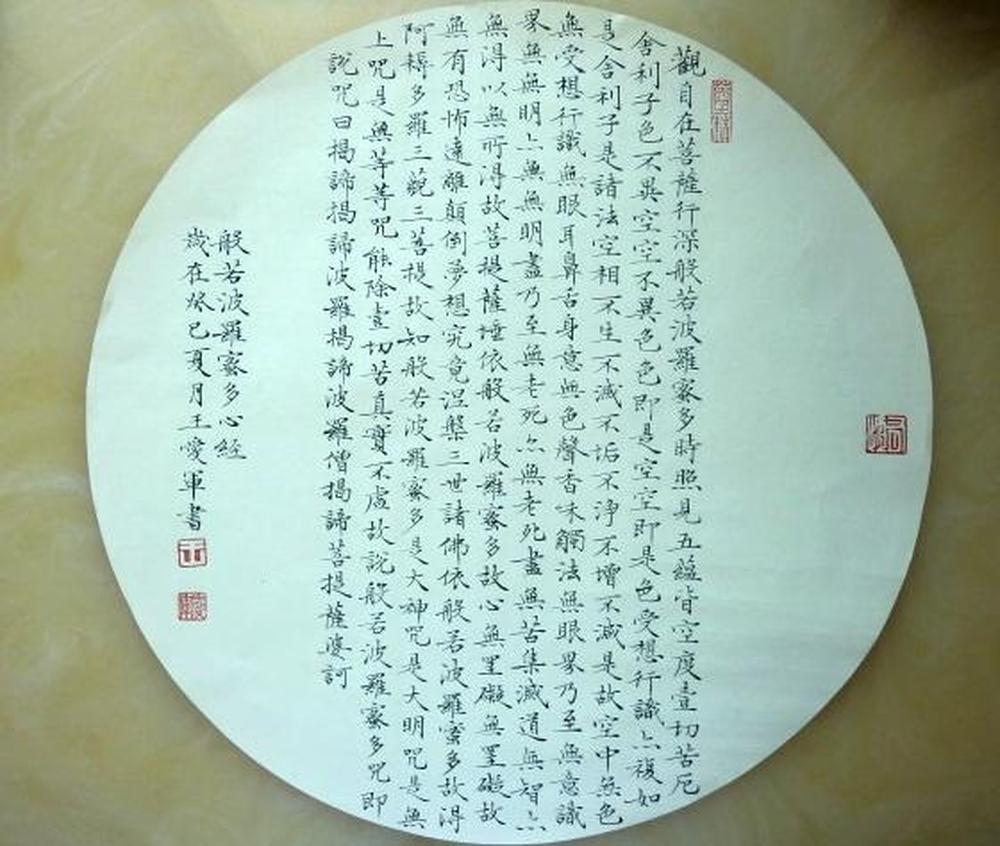 觀自在菩薩行深般若波羅蜜多時照見五蘊皆空度壹切苦厄
舍利子色不異空空不異色色即是空空即是色受想行識亦複如
是舍利子是諸法空相不生不滅不垢不淨不增不減是故空中無色
無受想行識無眼耳鼻舌身意無色聲香味觸法無眼界乃至無意識
界無無明亦無無明盡乃至無老死亦無老死盡無苦集滅道無智亦
無得以無所得故菩提薩埵依般若波羅蜜多故心無罣礙無罣礙故
無有恐怖遠離顛倒夢想究竟涅槃三世諸佛依般若波羅蜜多故得
阿耨多羅三藐三菩提故知般若波羅蜜多是大神咒是大明咒是無
上咒是無等等咒能除壹切苦真實不虛故說般若波羅蜜多咒即
說咒曰揭諦揭諦波羅揭諦波羅僧揭諦菩提薩婆訶
般若波羅蜜多心經
歲在癸巳夏月王愛軍書